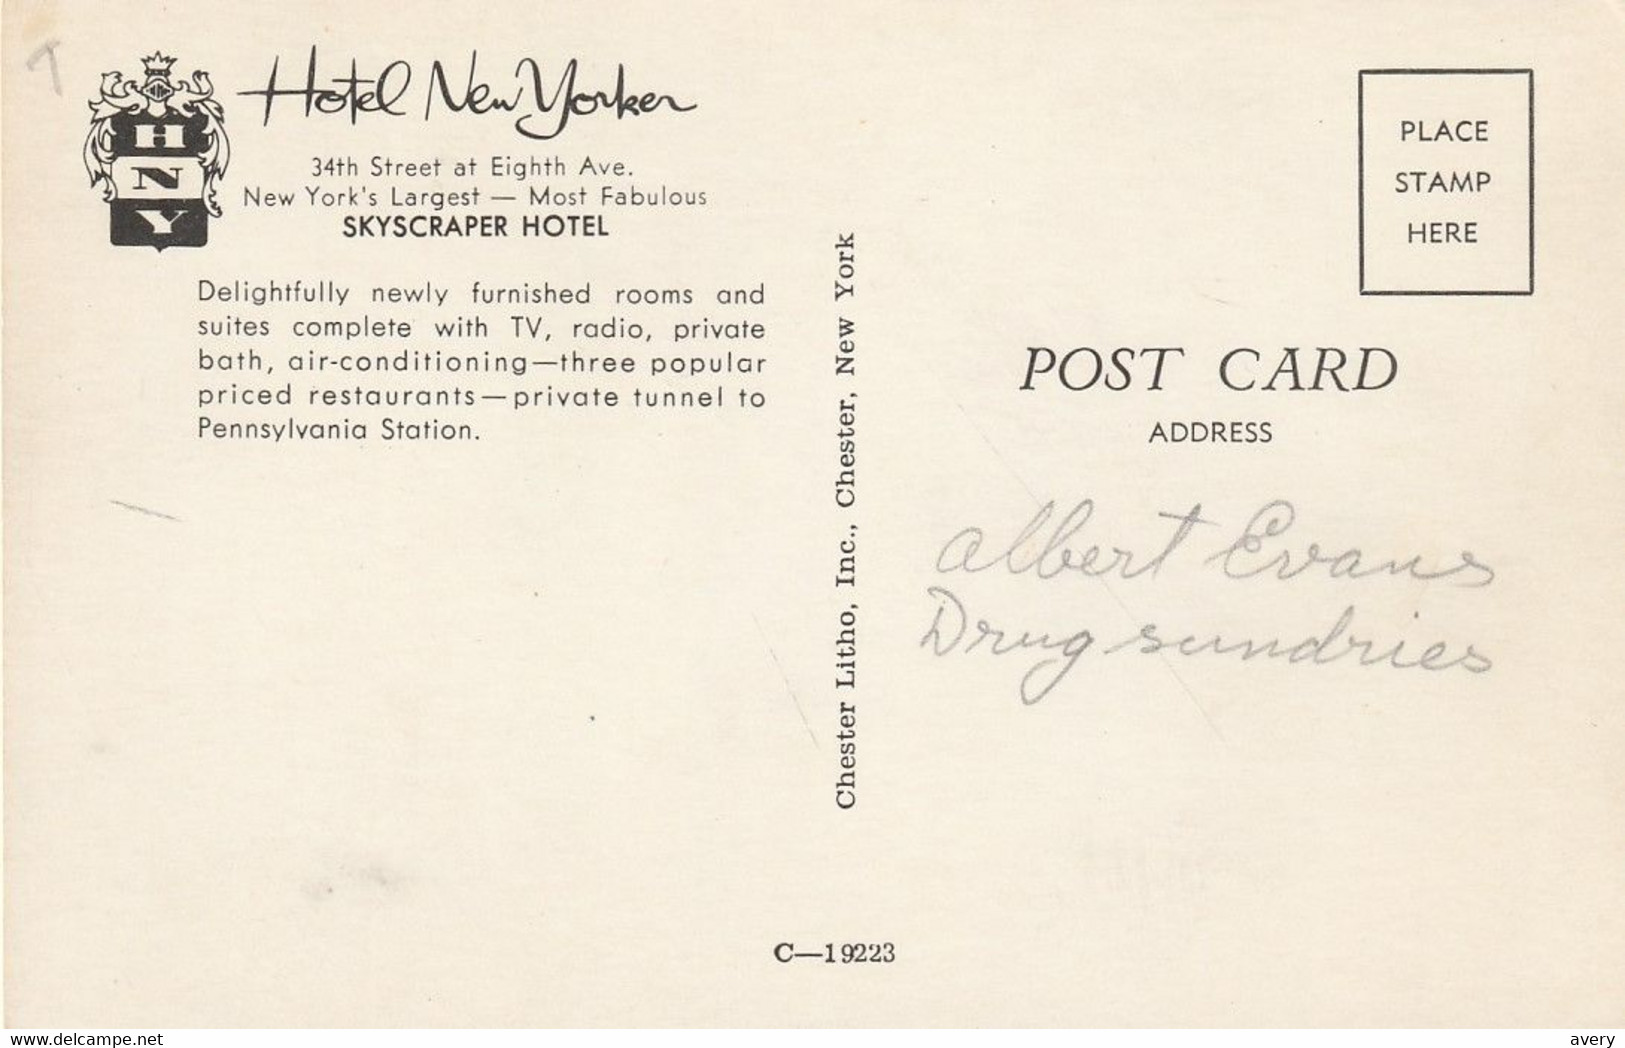 Hotel New Yorker
H
N
Y
34th Street at Eighth Ave.
New York's Largest — Most Fabulous
SKYSCRAPER HOTEL
Delightfully newly furnished rooms and
suites complete with TV, radio, private
bath, air-conditioning—three popular
priced restaurants—private tunnel to
Pennsylvania Station.
Chester Litho, Inc., Chester, New York
PLACE
STAMP
HERE
POST CARD
ADDRESS
Albert Evans
Drug sundries
C—19223
www.delcampe.net
avery